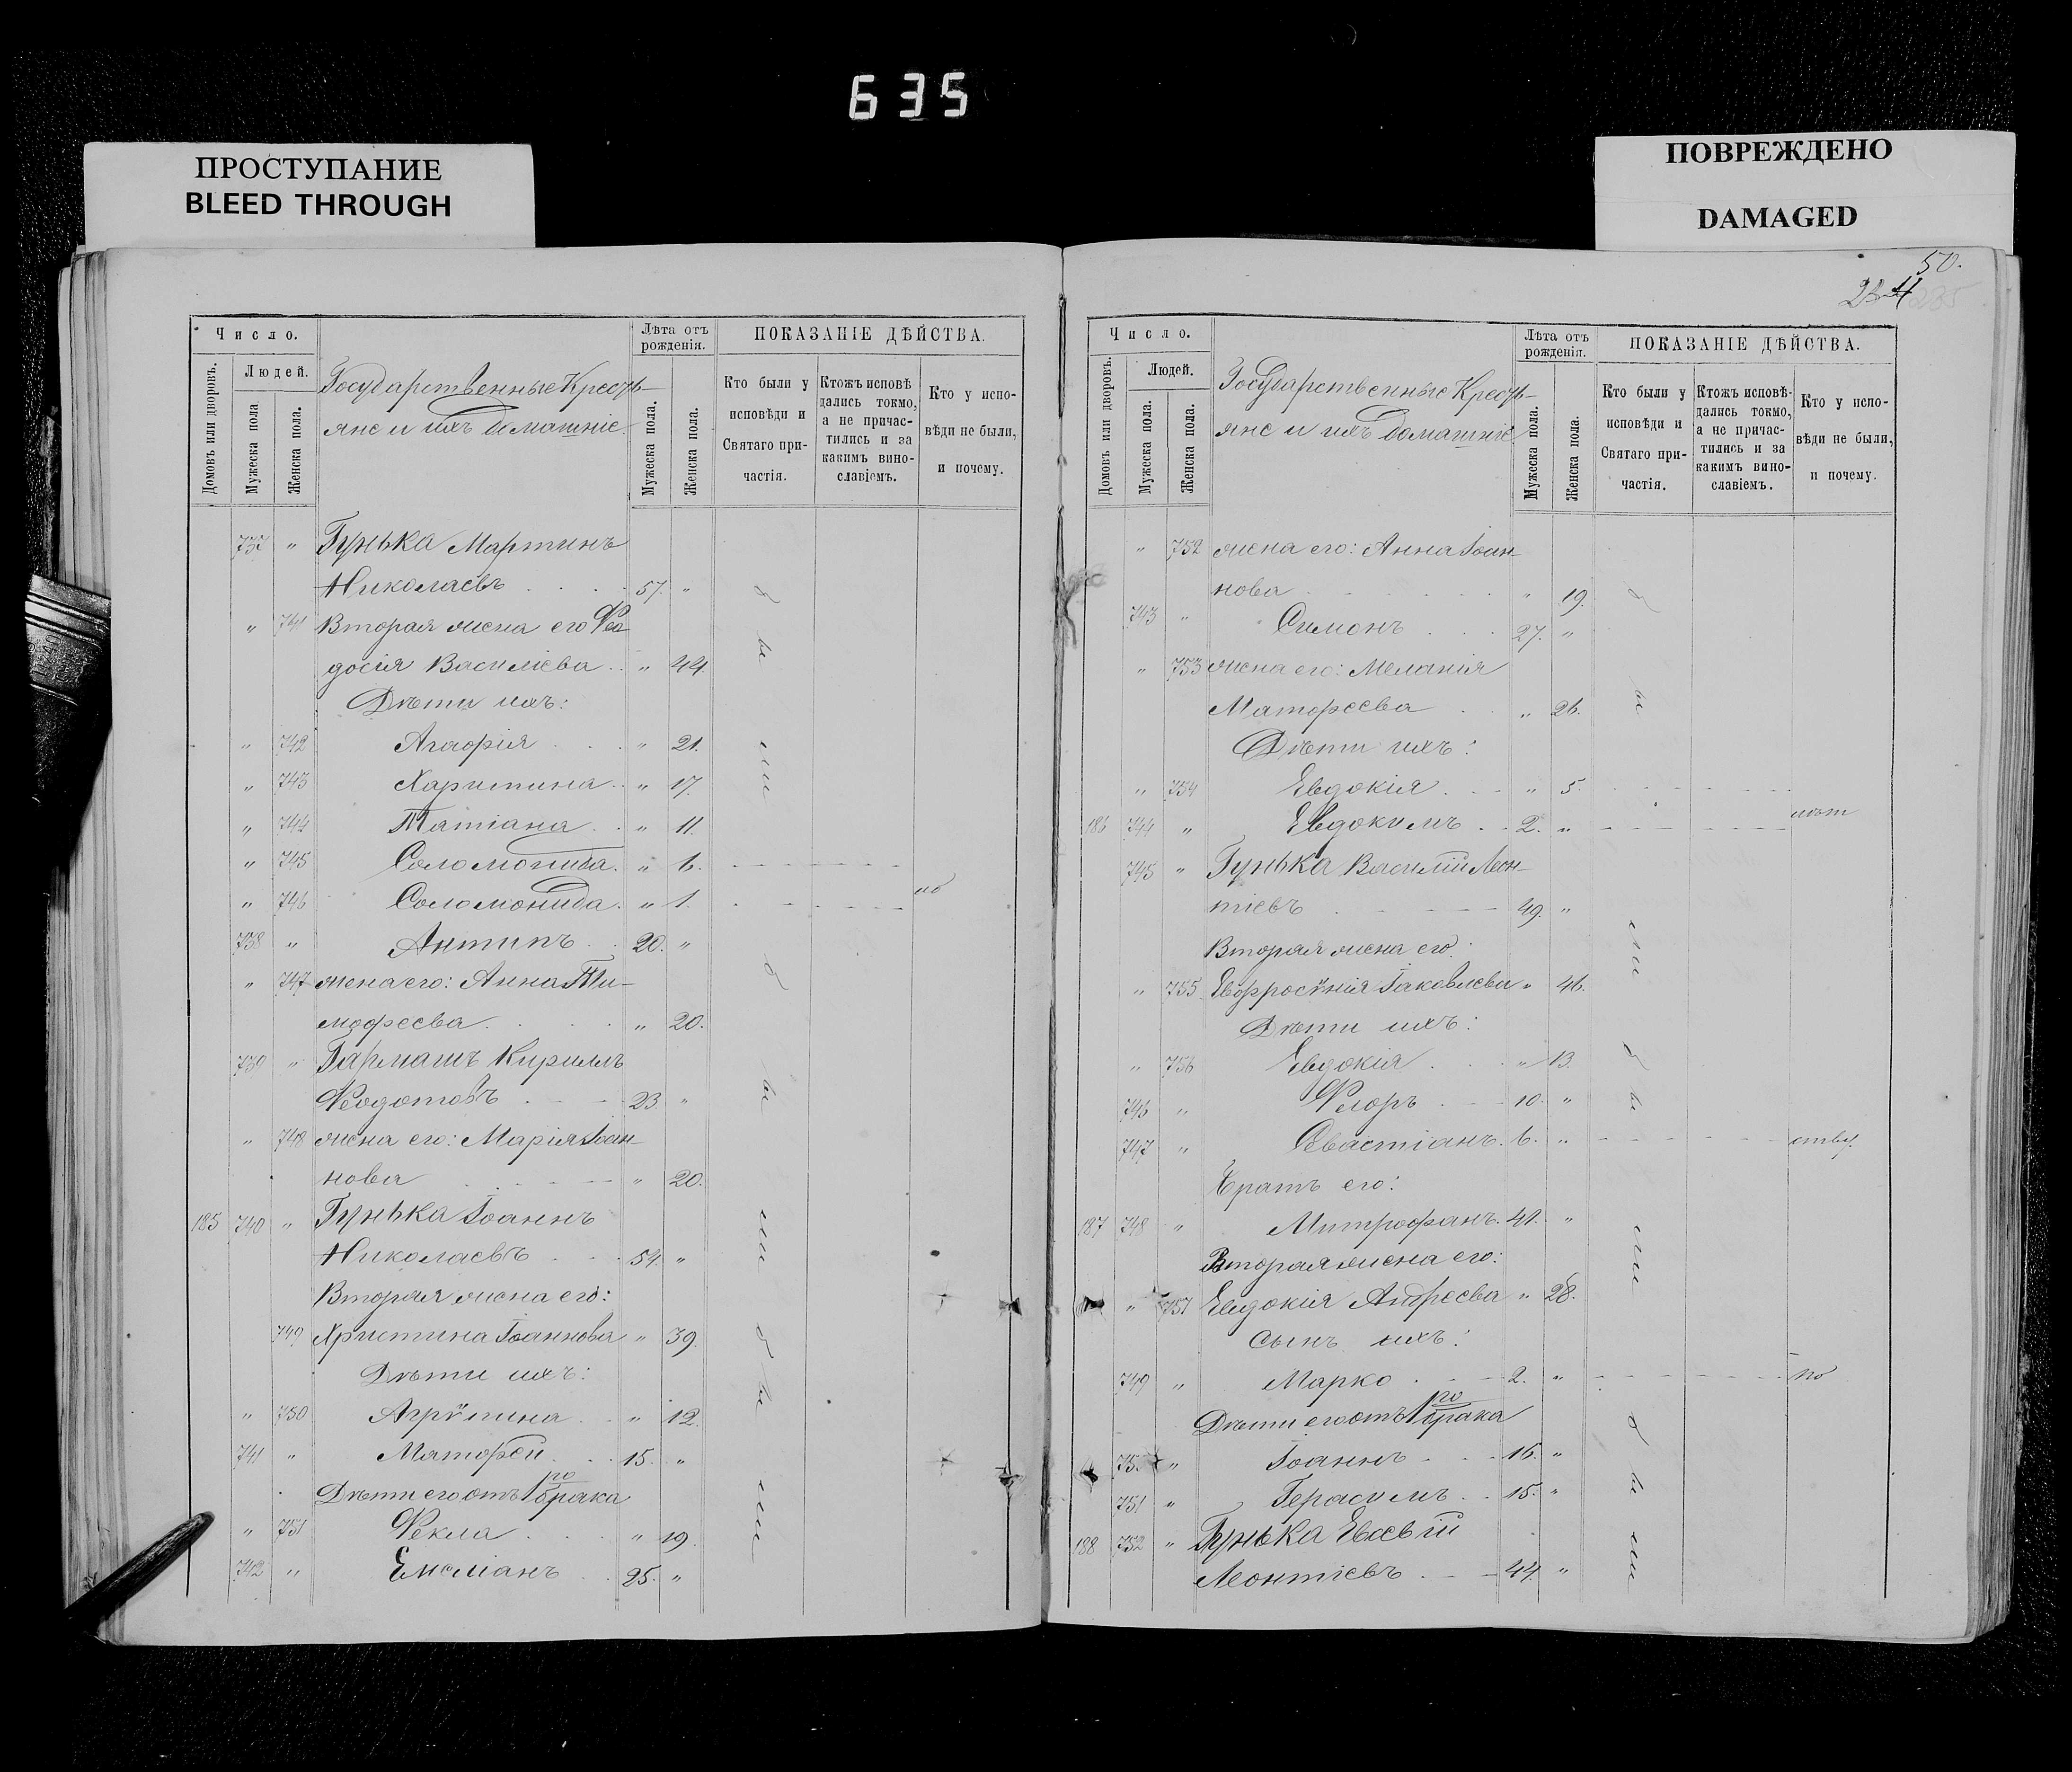 635
ПРОСТУПАНИЕ
BLEED THROUGH
ПОВРЕЖДЕНО
DAMAGED
50.
235
Число.
Людей.
Домовъ или дворовъ.
Мужеска пола
Женска пола.
Государственные Кресть-
яне и ихъ домашніе.
Лѣта отъ рожденія.
Мужеска пола.
Женска пола.
ПОКАЗАНІЕ ДѢЙСТВА.
Кто были у исповѣди и Святаго при-частія.
Ктожъ исповѣ дались токмо, а не причас-тились и за какимъ вино-славіемъ.
Кто у испо-вѣди не были, и почему.
737 " Гунька Мартинъ
Николаевъ 57. "
" 741 Вторая жена его Ѳео
досія Василіева " 44.
Дѣти ихъ:
" 742 Агафія " 21.
" 743 Харитина " 17.
" 744 Татіана " 11.
" 745 Соломонида. " 6.
" 746 Соломонида. " 1.
738 " Антипъ 20. "
" 747 жена его: Анна Ти-
мофеева " 20.
739 " Гармашъ Кириллъ
Ѳеодотовъ 23. "
" 748 жена его: Марія Іоан-
нова " 20.
185 740 " Гунька Іоаннъ
Николаевъ 54. "
Вторая жена его:
749 Христина Іоаннова " 39.
Дѣти ихъ:
" 750 Агрѵпина " 12.
741 " Матфей 15. "
Дѣти его отъ 1го брака
" 751 Ѳекла " 19.
742 " Емиліанъ 25. "
бы
ли
бы
ли
бы
ли
Число.
Людей.
Домовъ или дворовъ.
Мужеска пола.
Женска пола.
Государственные Кресть-
яне и ихъ домашніе
Лѣта отъ рожденія.
Мужеска пола.
Женска пола.
ПОКАЗАНІЕ ДѢЙСТВА.
Кто были у исповѣди и Святаго при-частія.
Ктожъ исповѣ-дались токмо, а не причас-тились и за какимъ вино-славіемъ.
Кто у испо-вѣди не были, и почему.
" 752 жена его: Анна Іоан-
нова " 19.
743 " Симонъ 27. "
" 753 жена его: Меланія
Матфеева " 26.
Дѣти ихъ:
" 754 Евдокія " 5.
186 744 " Евдокимъ 2. "
745 " Гунька Василій Леон-
тіевъ 49. "
Вторая жена его:
" 755 Евфросѵнія Іаковлева " 46.
Дѣти ихъ:
" 756 Евдокія " 13.
746 " Ѳлоръ 10. "
747 " Севастіанъ. 6. "
Братъ его:
187 748 " Митрофанъ. 41. "
Вторая жена его:
" 757 Евдокія Андреева " 28.
Сынъ ихъ:
749 " Марко 2. "
Дѣти его отъ 1го брака
75 " Іоаннъ 16. "
751 " Герасимъ 15. "
188 752 " Гунька Евсевій
Леонтіевъ 44. "
бы
ли
бы
ли
бы
ли